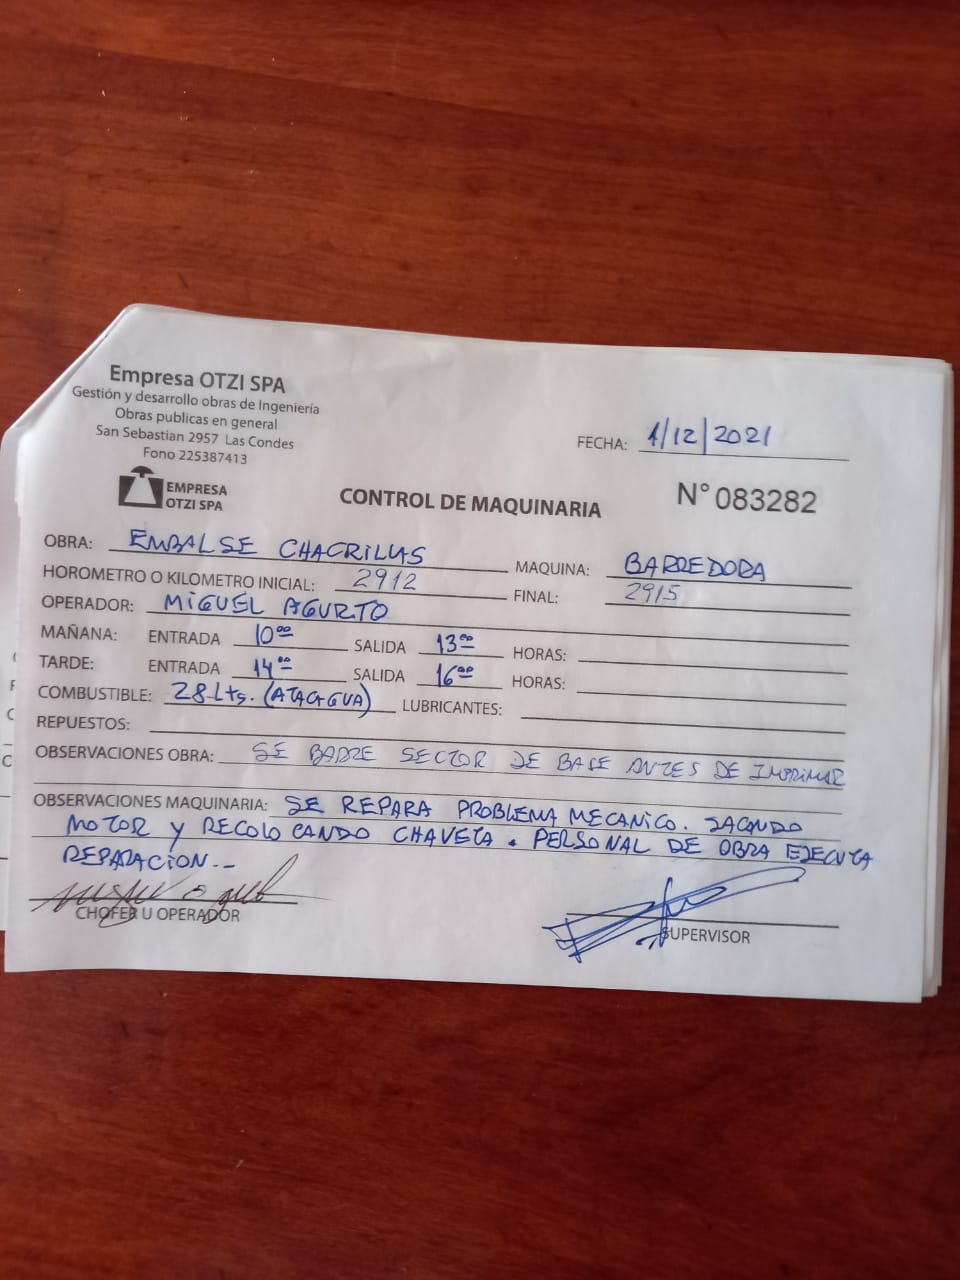 Empresa OTZI SPA
Gestión y desarrollo obras de Ingeniería
Obras publicas en general
San Sebastian 2957 Las Condes
Fono 225387413
EMPRESA
OTZI SPA
FECHA: 1/12/2021
CONTROL DE MAQUINARIA
N° 083282
OBRA: EMBALSE CHACRILLAS MAQUINA: BARREDORA
HOROMETRO O KILOMETRO INICIAL: 2912 FINAL: 2915
OPERADOR: MIGUEL AGURTO
MAÑANA: ENTRADA 10°° SALIDA 13°° HORAS:
TARDE: ENTRADA 14°° SALIDA 16°° HORAS:
COMBUSTIBLE: 28 Lts. (ATACAGUA) LUBRICANTES:
REPUESTOS:
OBSERVACIONES OBRA: SE BARRE SECTOR DE BASE ANTES DE IMPRIMAR
OBSERVACIONES MAQUINARIA: SE REPARA PROBLEMA MECANICO. SACANDO
MOTOR Y RECOLOCANDO CHAVETA. PERSONAL DE OBRA EJECUTA
REPARACION.-
CHOFER U OPERADOR
SUPERVISOR